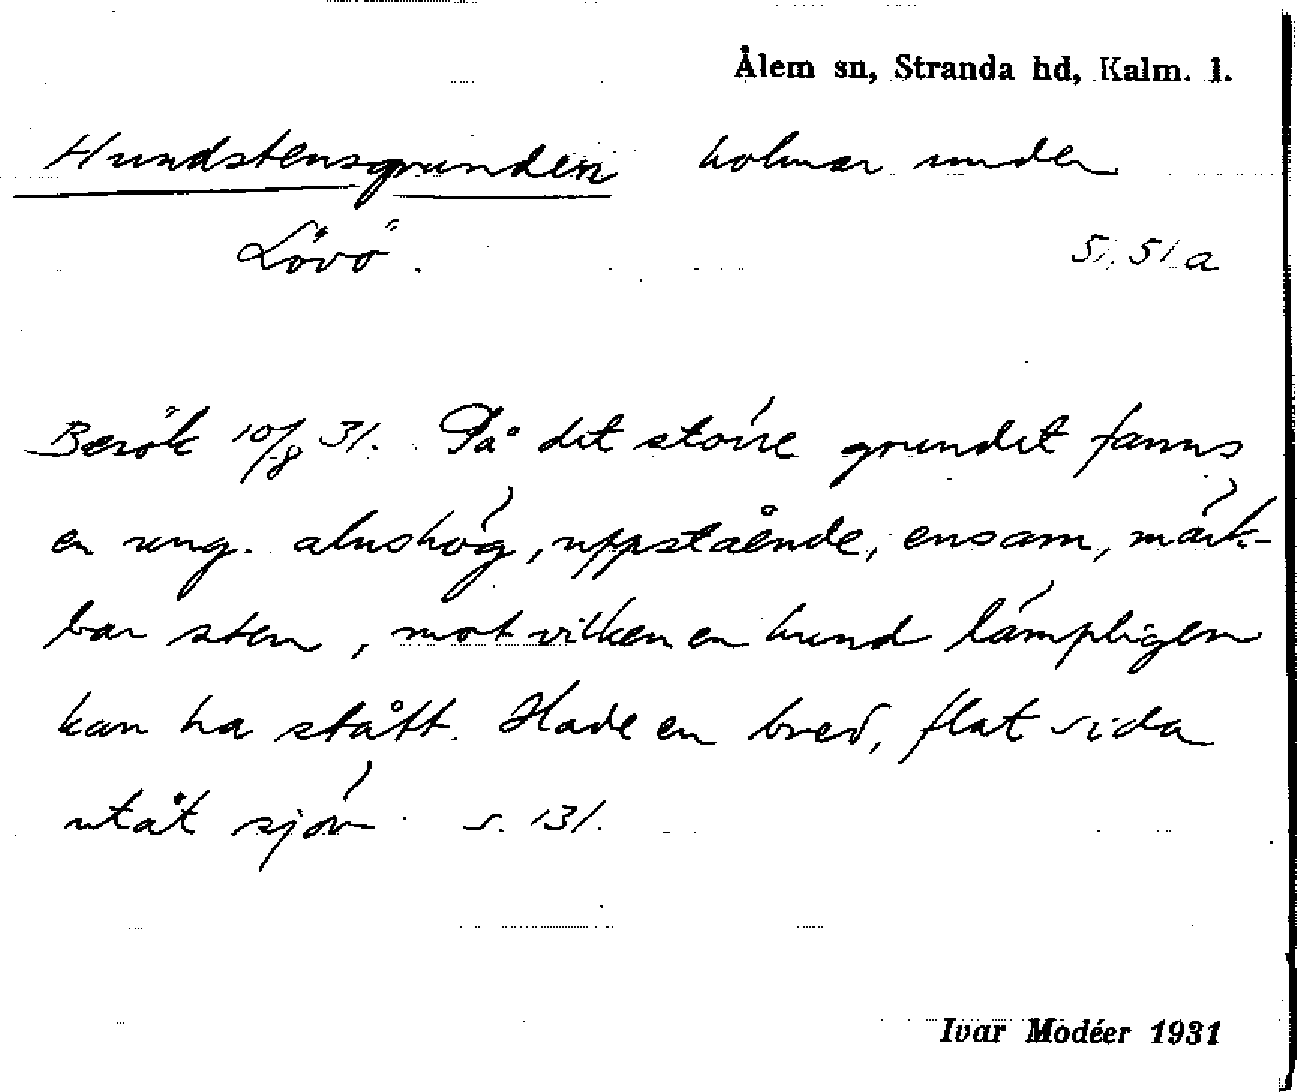 Ålem sn, Stranda hd, Kalm. l.
Hundstensgrunden holmar under
Lövö.
51, 51 a
Besök 10/8 31. På det större grundet fanns
en ung. alnshög, uppstående, ensam, märk-
bar sten, mot vilken en hund lämpligen
kan ha stått. Hade en bred, flat sida
utåt sjön s. 131.
Ivar Modéer 1931